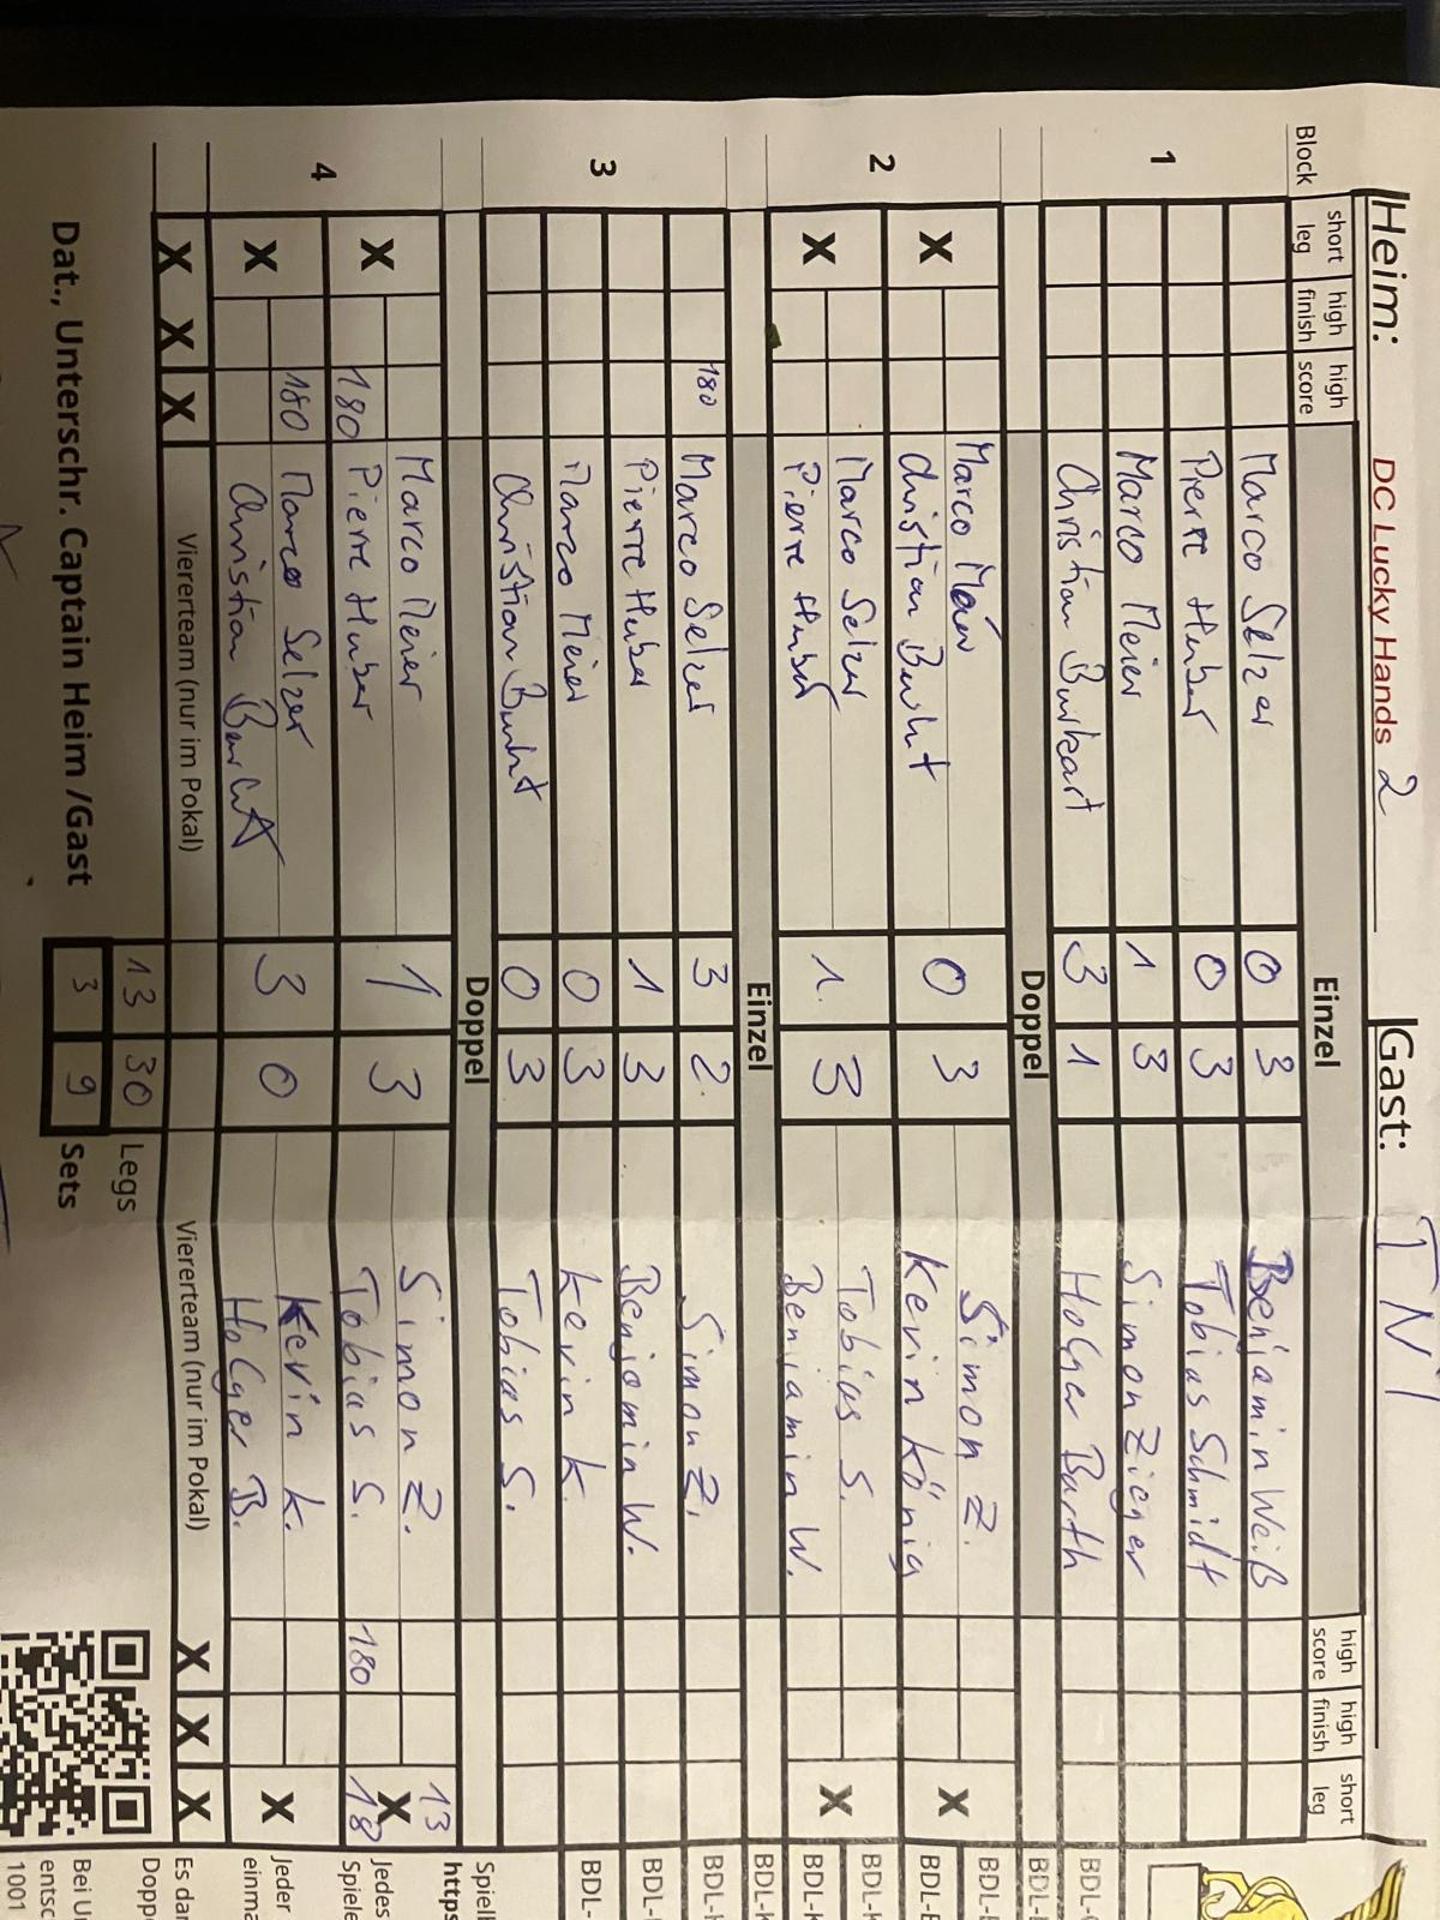 Heim: DC Lucky Hands 2 Gast:
Block short leg high finish high score Einzel high score high finish short leg
Marco Selzer 0 3 Benjamin Weiß
Pierre Huber 0 3 Tobias Schmidt
1 Marco Meier 1 3 Simon Zieger
Christian Burkart 3 1 Holger Barth
Doppel
Marco 0 3 Simon Z.
X Christian Kevin König X
2 Marco Selzer 1. 3 Tobias S.
X Pierre Huber Benjamin W. X
Einzel
180 Marco Selzer 3 2 Simon Z.
Pierre Huber 1 3 Benjamin W.
3 Marco Meier 0 3 Kevin K.
Christian 0 3 Tobias S.
Doppel
Marco Meier 1 3 Simon Z. 13
X 180 Pierre Huber Tobias S. 180 X 18
4 180 Marco Selzer 3 0 Kevin K.
X Christian Holger B. X
X X X Viererteam (nur im Pokal) Viererteam (nur im Pokal) X X X
13 30 Legs
Dat., Unterschr. Captain Heim /Gast 3 9 Sets
BDL-
BDL-
BDL-
BDL-
BDL-
BDL-
BDL-
BDL-
BDL-
BDL-
Spiell
https
Jedes
Spiele
Jeder
einma
Es dar
Dopp
Bei U
entsc
1001